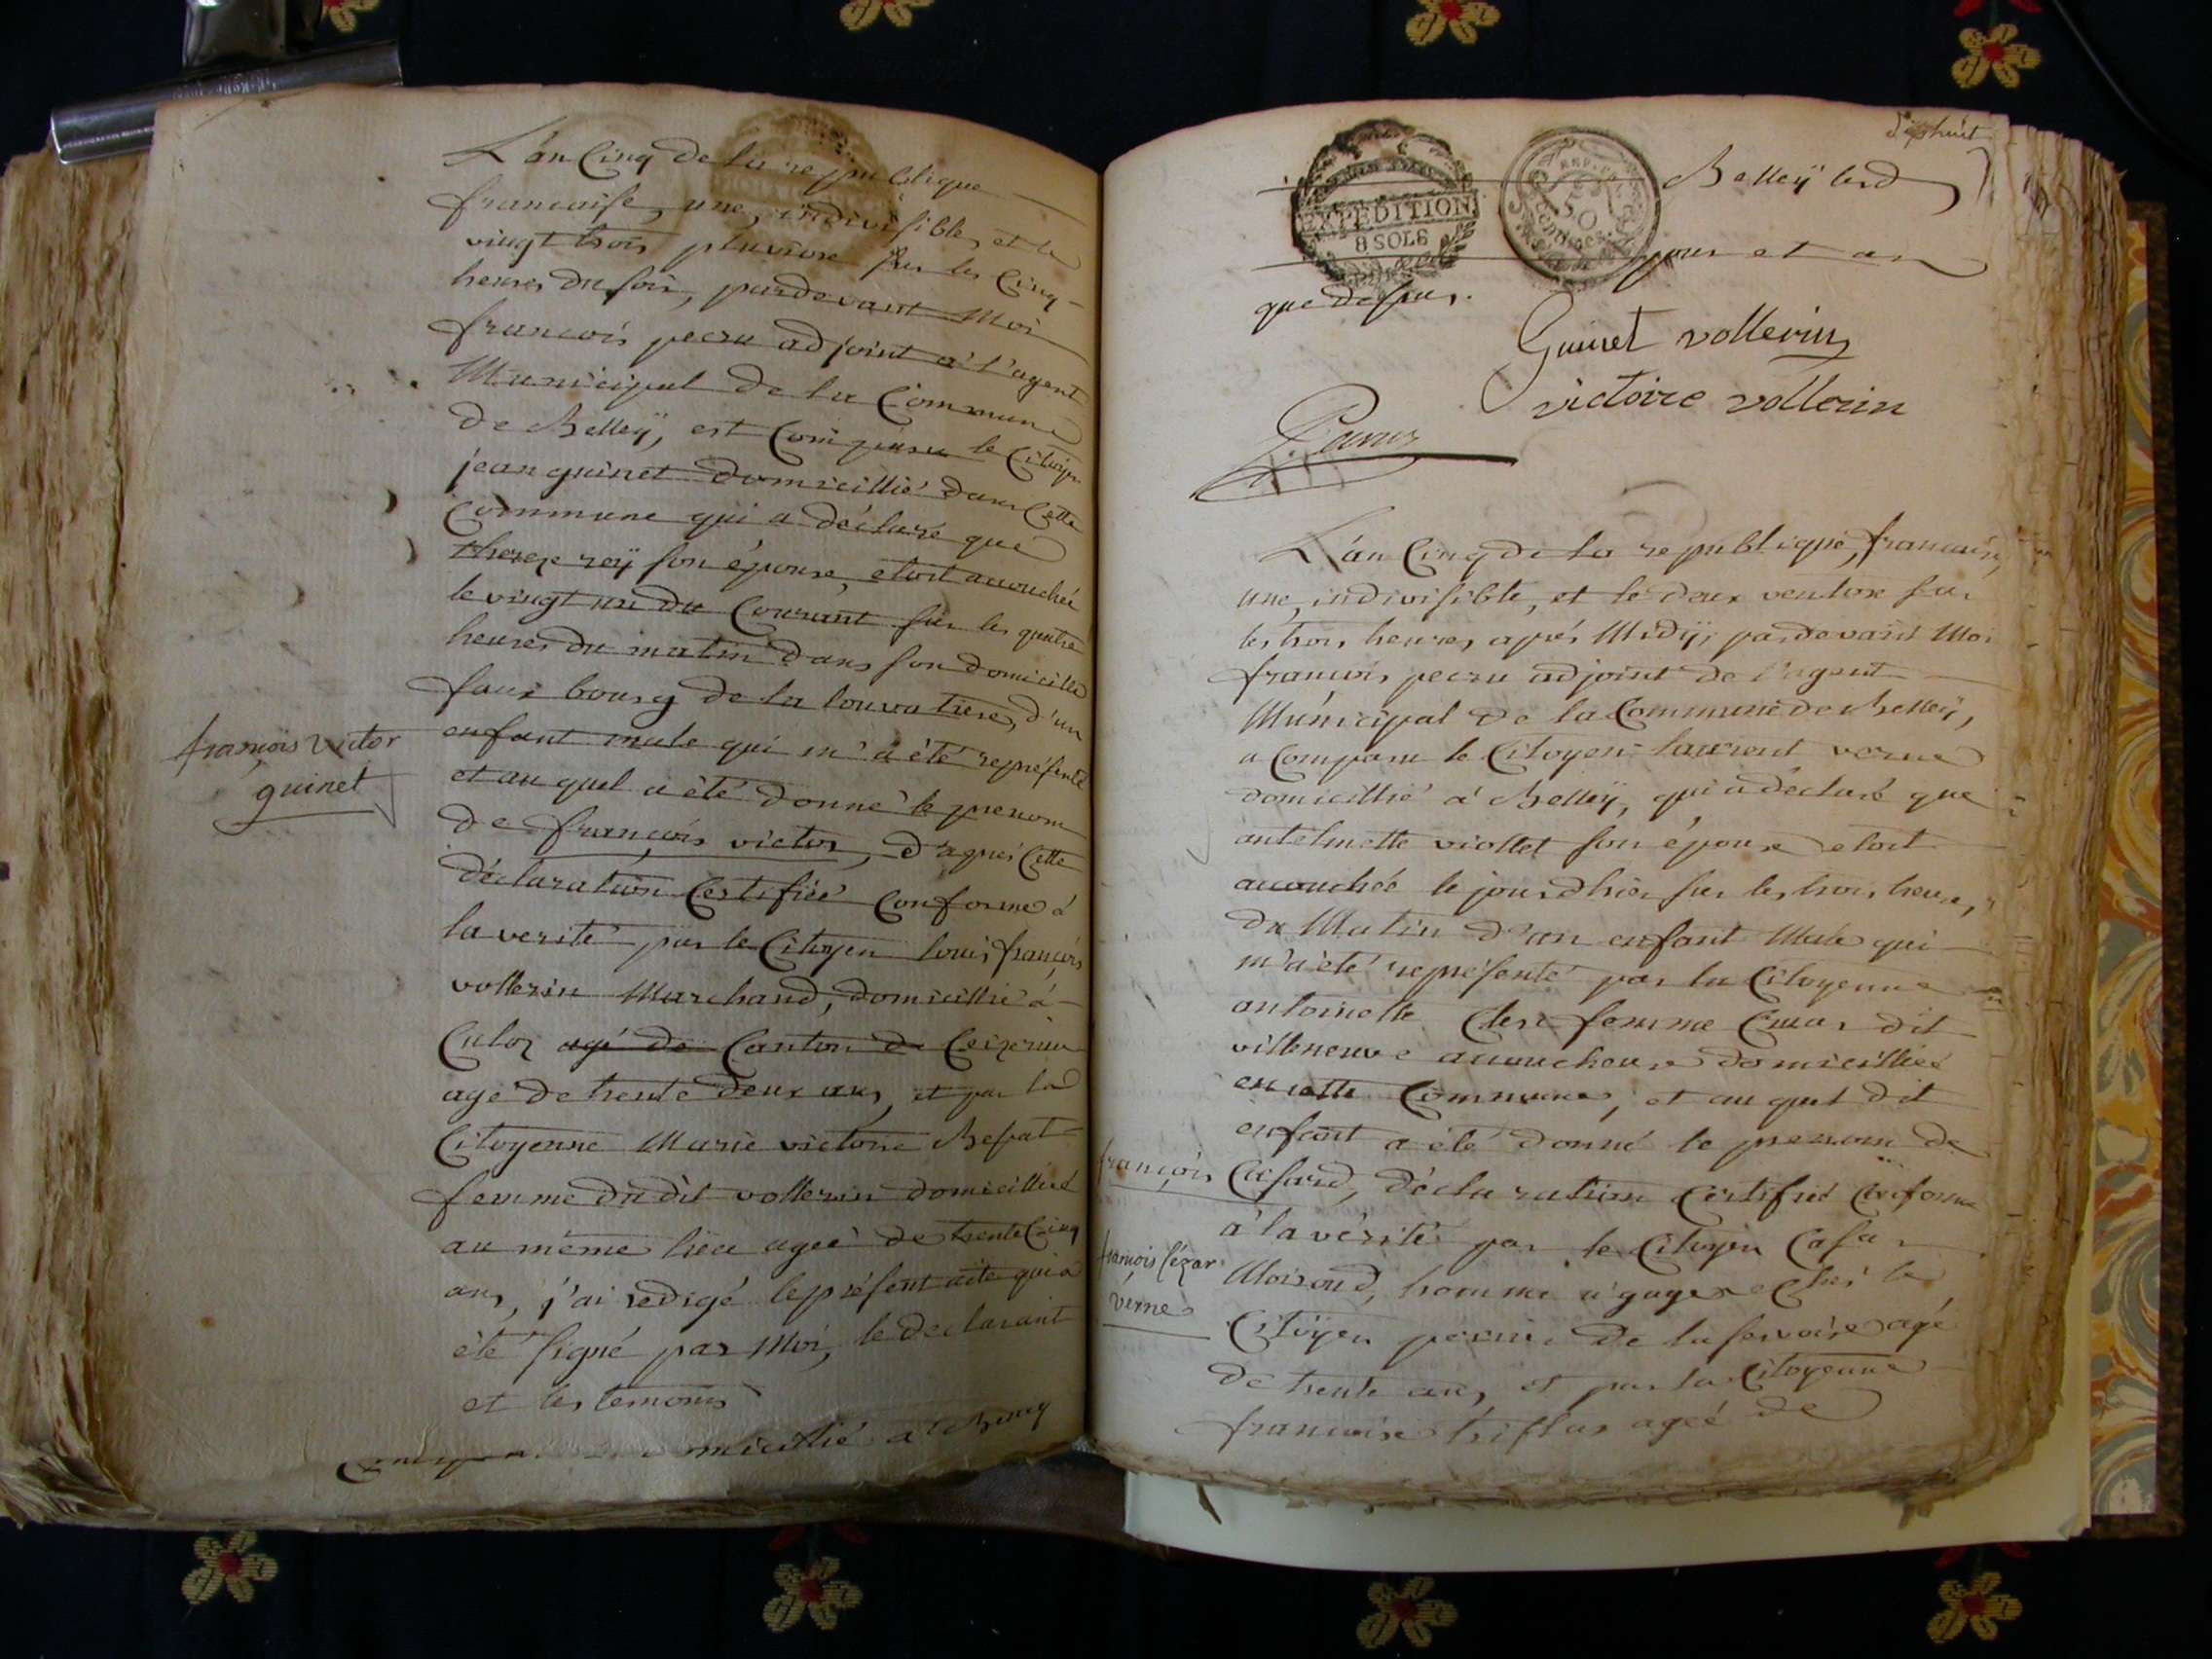 L'an Cinq de la republique
francaise, une, indivisible, et le
vingt trois pluviose sur les Cinq
heures du soir, pardevant Moi
francois pecru adjoint a l'agent
Municipal de la Commune
de Belleÿ, est Comparu le Citoyen
jean guinet domicillié dans Cette
Commune qui a déclaré que
thereze reÿ son épouse, etoit accouchée
le vingt un du Courant sur les quatre
heures du matin dans son domicille
faux bourg de la louvatiere, d'un
enfant male qui m'a été représenté
et au quel a été donné le prenom
de francois victor, d'aprés Cette
déclaration Certifiée Conforme à
la verité par le Citoyen louis francois
vollerin Marchand, domicillié à
Culoz agé de Canton de Ceizerieu
agé de trente deux ans, et par la
Citoyenne Marie victoire
femme du dit vollerin domicilliée
au même lieu ageé de trente Cinq
ans, j'ai redigé le présent acte qui a
été signé par Moi, le declarant
et les temoins
domicillié a
françois victor
guinet
dix huit
Belleÿ lesd
EXPEDITION
8 SOLS
50
Centimes
jour et an
que dessus.
Guinet vollerin
victoire vollerin
L'an Cinq de la republique, francaise,
une, indivisible, et le deux ventose sur
les trois heures aprés Midÿ, pardevant Moi
francois pecru adjoint de l'agent
Municipal de la Commune de Belleÿ,
a Comparu le Citoyen laurent verne
domicillié à Belleÿ, qui a déclaré que
antelmette viollet son épouse etoit
accouchée le jour d'hier sur les trois heures
du Matin d'un enfant Male qui
m'a été représenté par la Citoyenne
antoinette Clerc femme dit
villeneuve accoucheuse domicilliée
en cette Commune, et au quel dit
enfant a été donné le prenom de
françois Cesard, déclaration Certifiée Conforme
à la vérité par le Citoyen Cesar
Moiroud, homme à gages chez le
Citoyen de la servoise agé
de trente ans, et par la Citoyenne
francoise ageé de
françois Cézar
verne